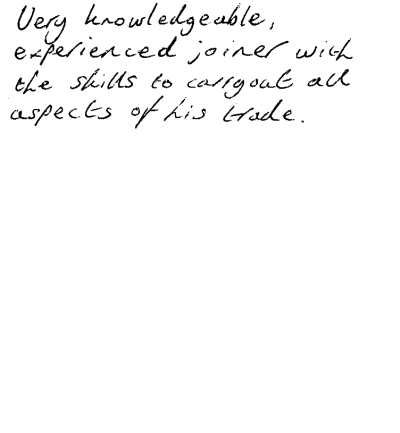 Very knowledgeable,
experienced joiner with
the skills to carryout all
aspects of his trade.